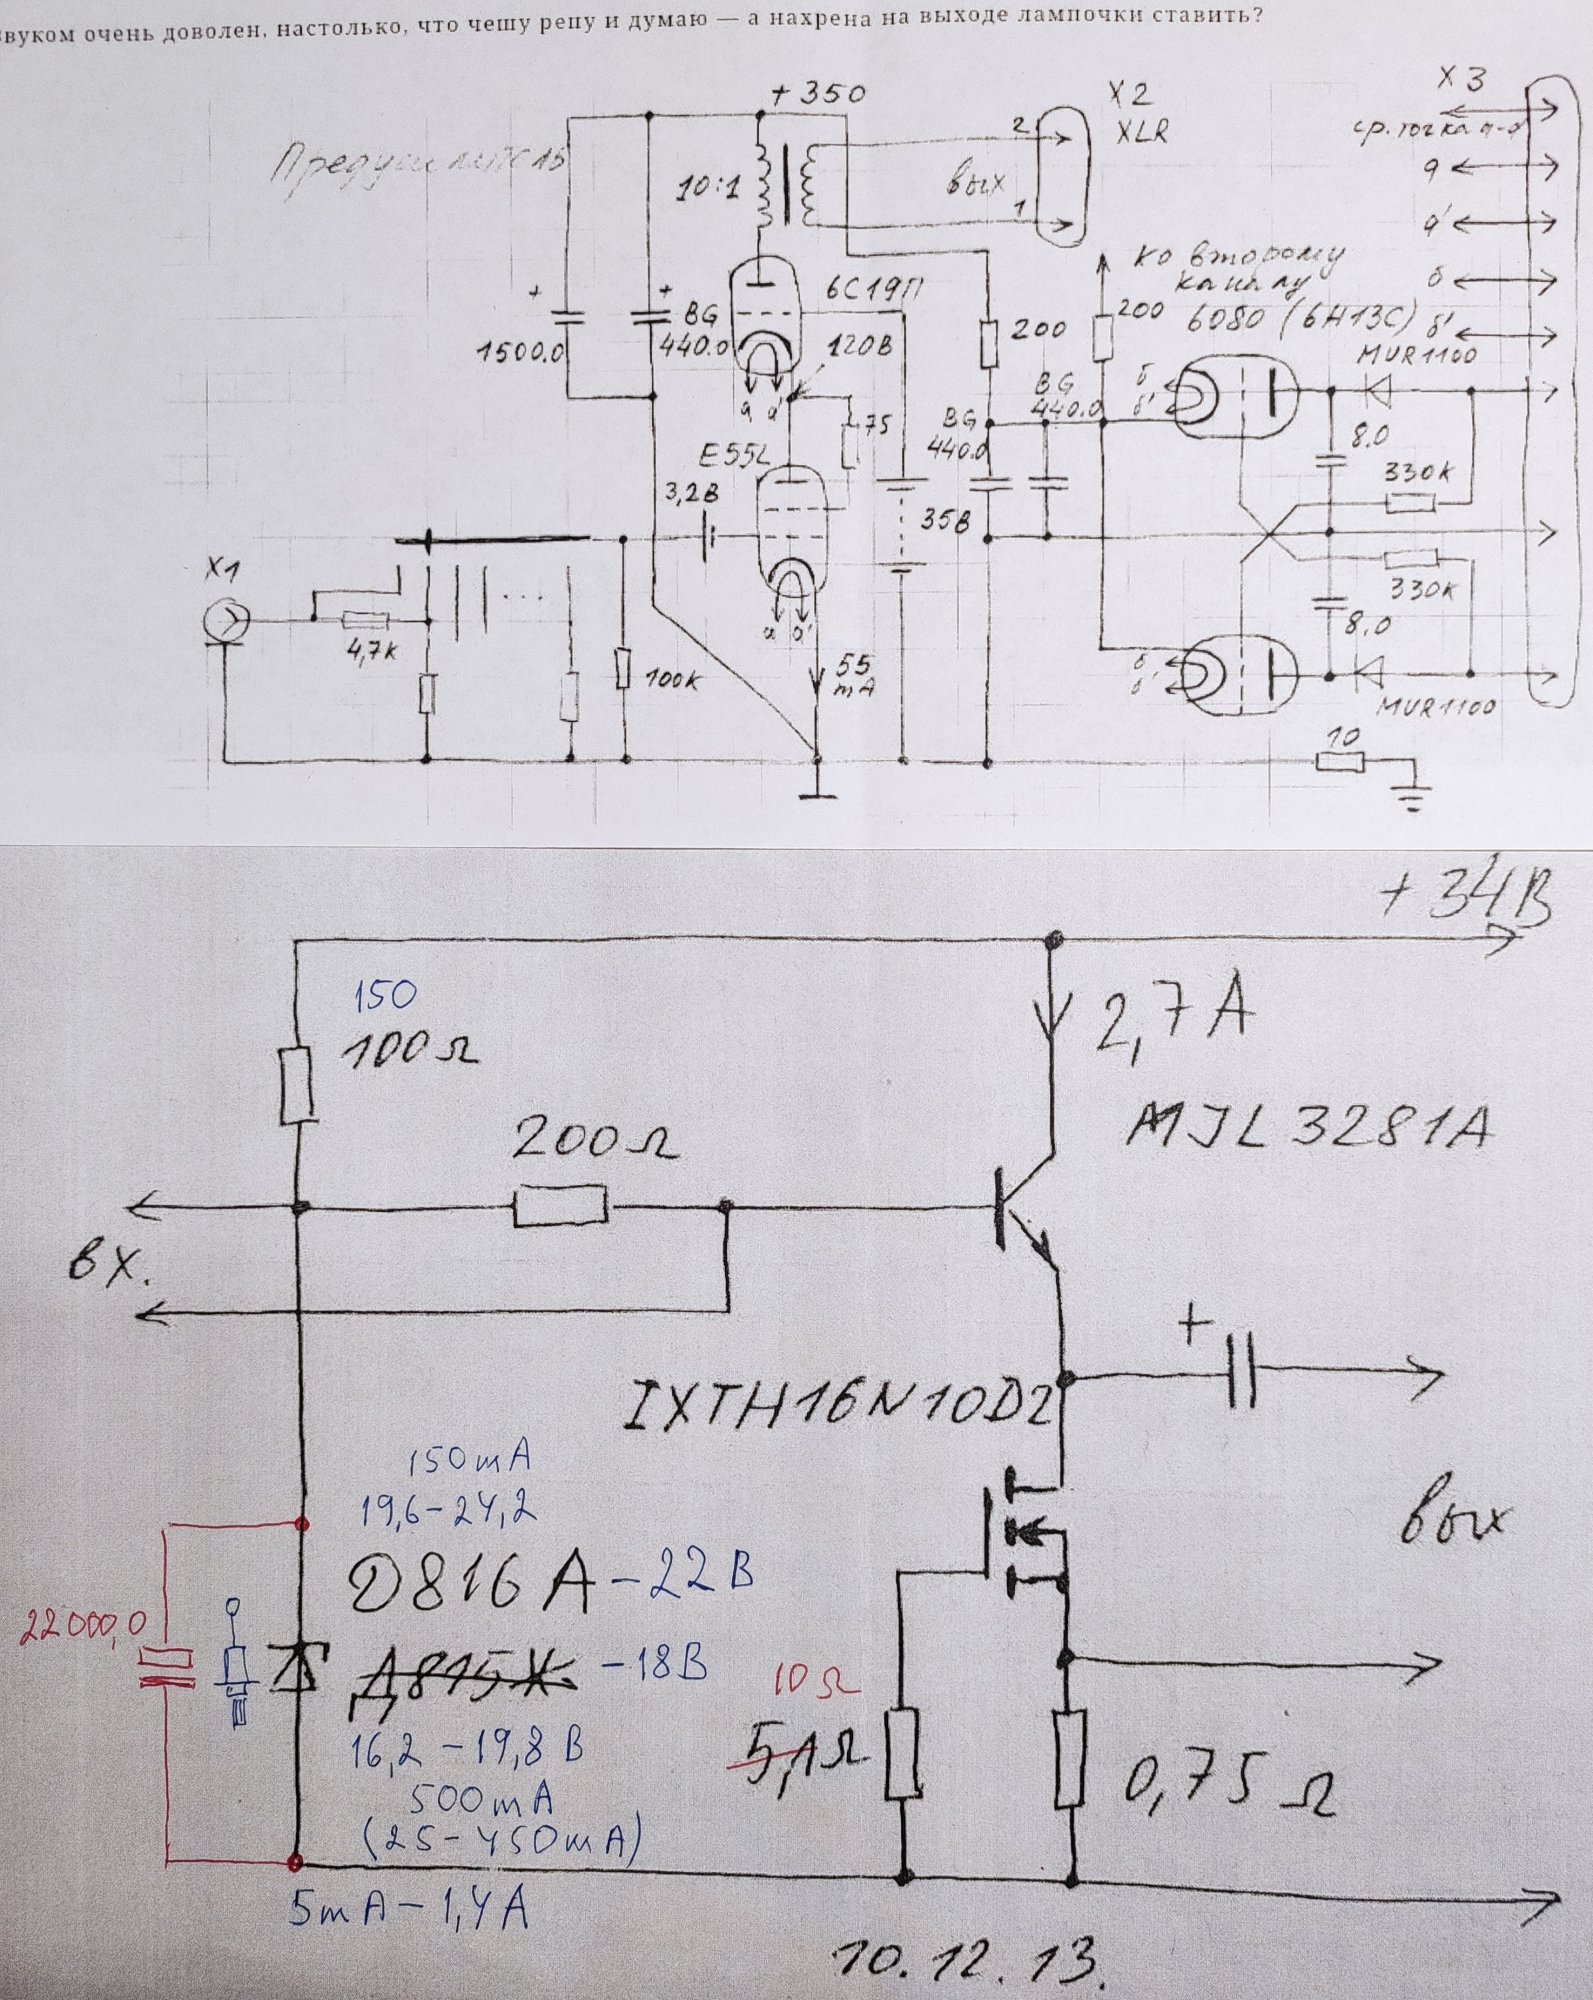 звуком очень доволен, настолько, что чешу репу и думаю — а нахрена на выходе лампочки ставить?
+ 350
X2
XLR
X3
ср. точка
10:1
2
вых
1
а
а'
б
б'
ко второму
каналу
6С19П
6080 (6Н13С)
MUR1100
+
1500.0
+
BG
440.0
120В
200
200
а а'
75
BG
440.0
BG
440.0
б
б'
8.0
330к
E55L
3,2В
35В
X1
4,7к
...
100к
а а'
55
mA
330к
8.0
б
б'
MUR1100
10
+ 34В
150
100Ω
2,7А
200Ω
MJL3281A
вх.
+
IXTH16N10D2
150mA
19,6-24,2
вых
D816А-22В
22000,0
Д815Ж -18В
10Ω
5,1Ω
16,2-19,8 В
0,75 Ω
500mA
(25-450mA)
5mA-1,4A
10.12.13.